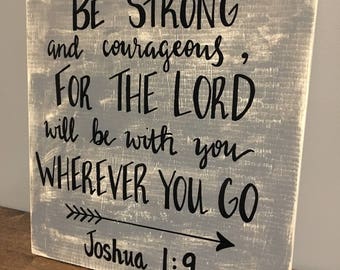 BE STRONG
and courageous,
FOR THE LORD
will be with you
WHEREVER YOU GO
Joshua 1:9